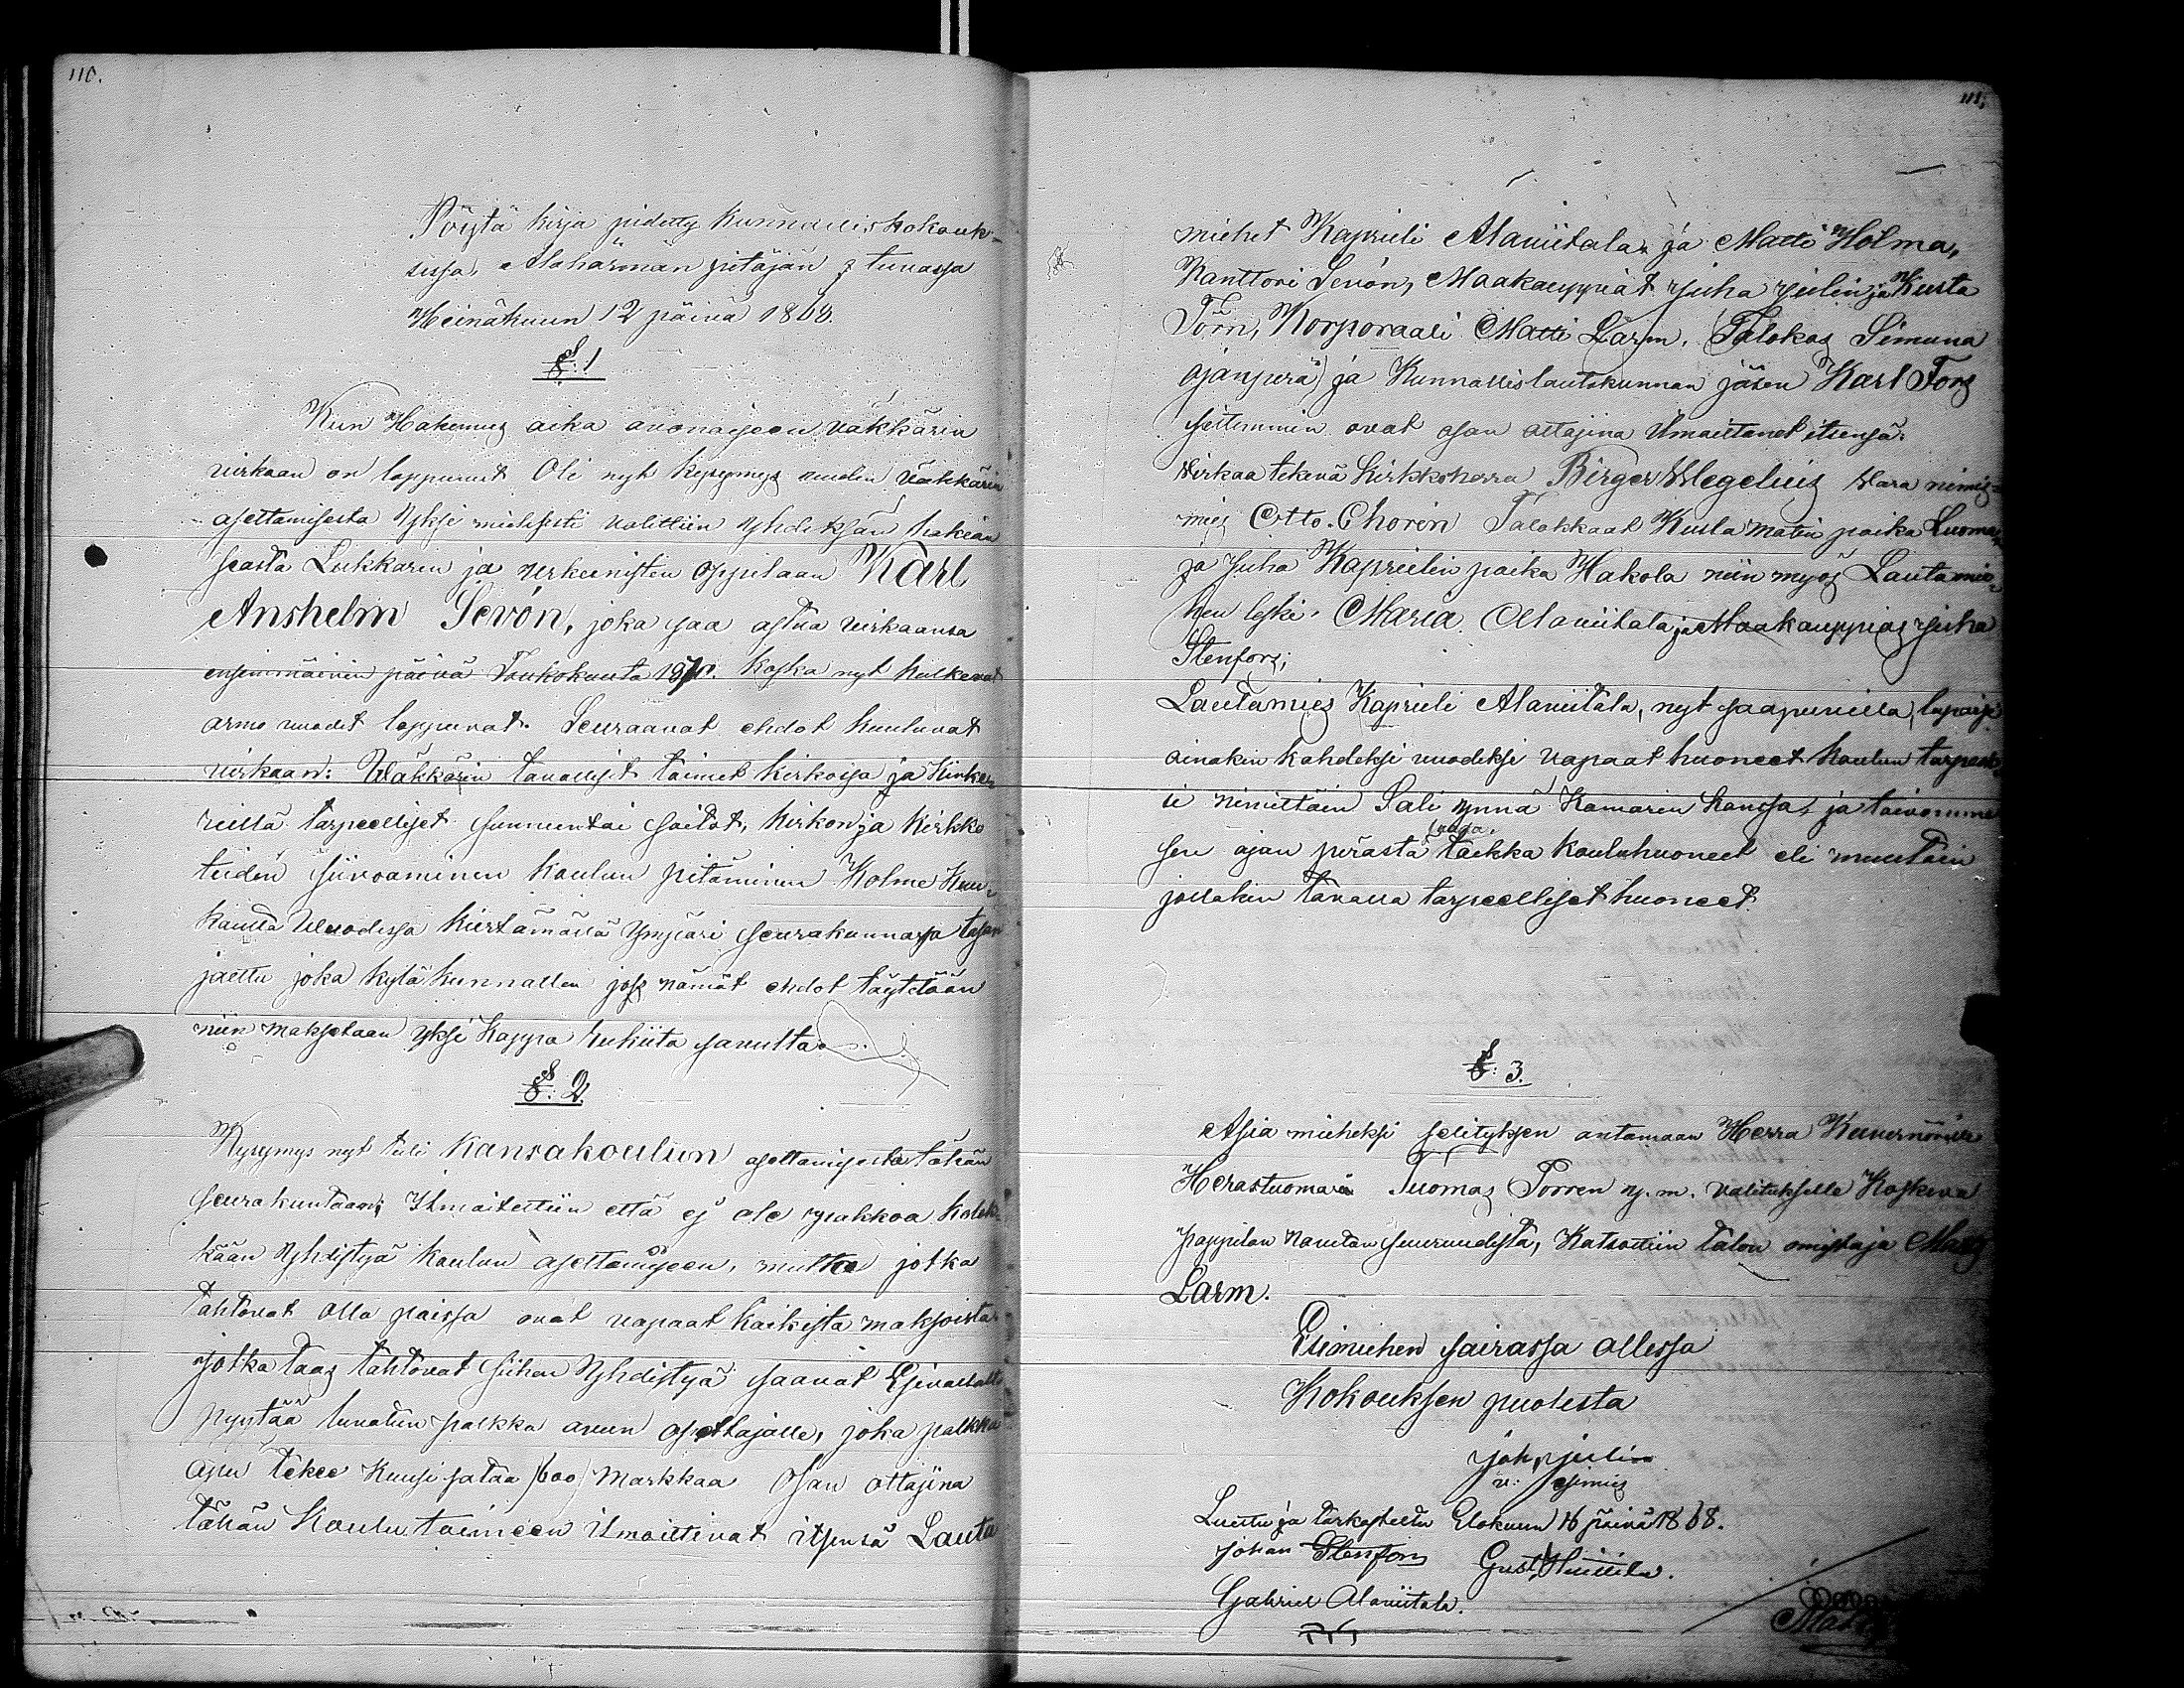 110.
Pöytä kirja pidetty Kunnallis kokouk-
sissa, Alahärmän pitäjän tuvassa
Heinäkuun 12 päivä 1868.
§: 1
Kun Hakemus aika avonaiseen väkkärin
virkaan on loppunut Oli nyt kysymys uuden väkkärin
asettamisesta Yksi mielisesti valittiin yhdeksän hakian
seasta Lukkarin ja urkunisten oppilaan Karl
Anshelm Sevón, joka saa astua virkaansa
ensimmäinen päivä Toukokuuta 1870. koska nyt kulkevat
armo vuodet loppuvat. Seuraavat ehdot kuuluvat
virkaan: Wäkkärin tavalliset toimet kirkoisa ja Kinke-
reillä tarpeelliset sunnuntai soitot, kirkon ja kirkko
teiden siivoaminen koulun pitäminen Kolme Kuu-
kautta Wuodessa kiertämällä ympäri seurakunnassa tasan
jaettu joka kylä kunnallen jos nämät ehdot täytetään
niin maksetaan yksi Kappa rukiita savulta.
§: 2.
Kysymys nyt tuli Kansakoulun asettamisesta tähän
seurakuntaan; Ilmoitettiin että ej ole pakkoa kelek-
kään Yhdistyä koulun asettamiseen, mutta jotka
tahtovat olla poissa ovat vapaat kaikista maksoista
jotka taas tahtovat siihen Yhdistyä saavat Esivallalta
pyytää luvatun palkka avun opettajalle, joka palkka
apu tekee Kuusi sataa /600/ Markkaa Osan ottajina
tähän Koulu toimeen ilmoittivat itsensä Lauta
111.
miehet Kaprieli Alaniitala ja Matti Holma,
Kanttori Sevón, Maakauppiat Juha Julin ja Kusta
Törn, Korporaali Matti Larm, Talokas Simuna
ojanperä) ja Kunnallislautakunnan jäsen Karl Fors
sittemmin ovat osan ottajina ilmoittanet itsensä:
Virkaa tekevä Kirkkoherra Birger Wegelius Wara nimis-
mies Otto. Thorén Talokkaat Kusta matin poika Luoma,
ja Juha Kaprielin poika Hakola niin myös Lautamie-
hen leski, Maria Alaniitala ja Maakauppias Juha
Stenfors;
Lautamies Kaprieli Alaniitala, nyt saapuvilla, lupaisi
ainakin kahdeksi vuodeksi vapaat huoneet koulun tarpeek-
si nimittäin Sali ynnä Kamarin kanssa, ja toivomme
sen ajan perästä taikka kouluhuoneet eli muutoin
jollakin tavalla tarpeelliset huoneet.
§: 3.
Asia mieheksi selityksen antamaan Herra Kuvernöörille
Herastuomari Tuomas Porren y. m. valitukselle Koskeva
pappilan navetan suuruudesta, Katsottiin talon omistaja Matts
Larm.
Esimiehen sairassa ollessa
Kokouksen puolesta
Joh, Julin
v: esimies
Luettu ja tarkastettu Elokuun 16 päivä 1868.
Johan Stenfors Gust, Huiiila.
Gabriel Alaniitala.